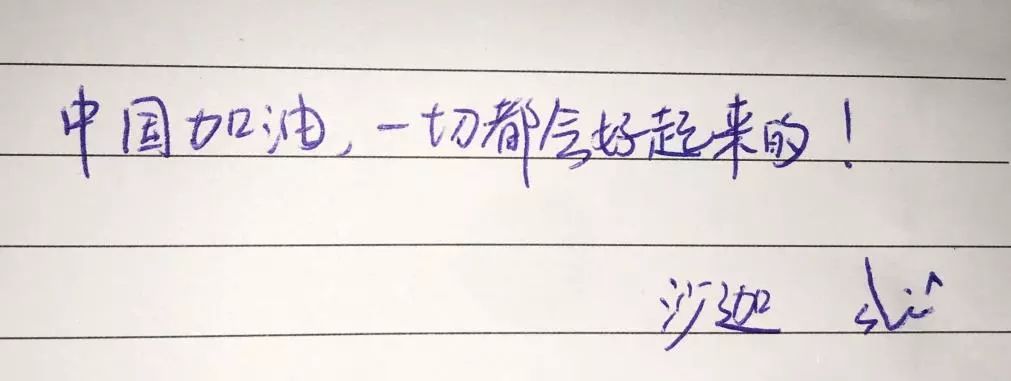 中国加油,一切都会好起来的!
沙迦